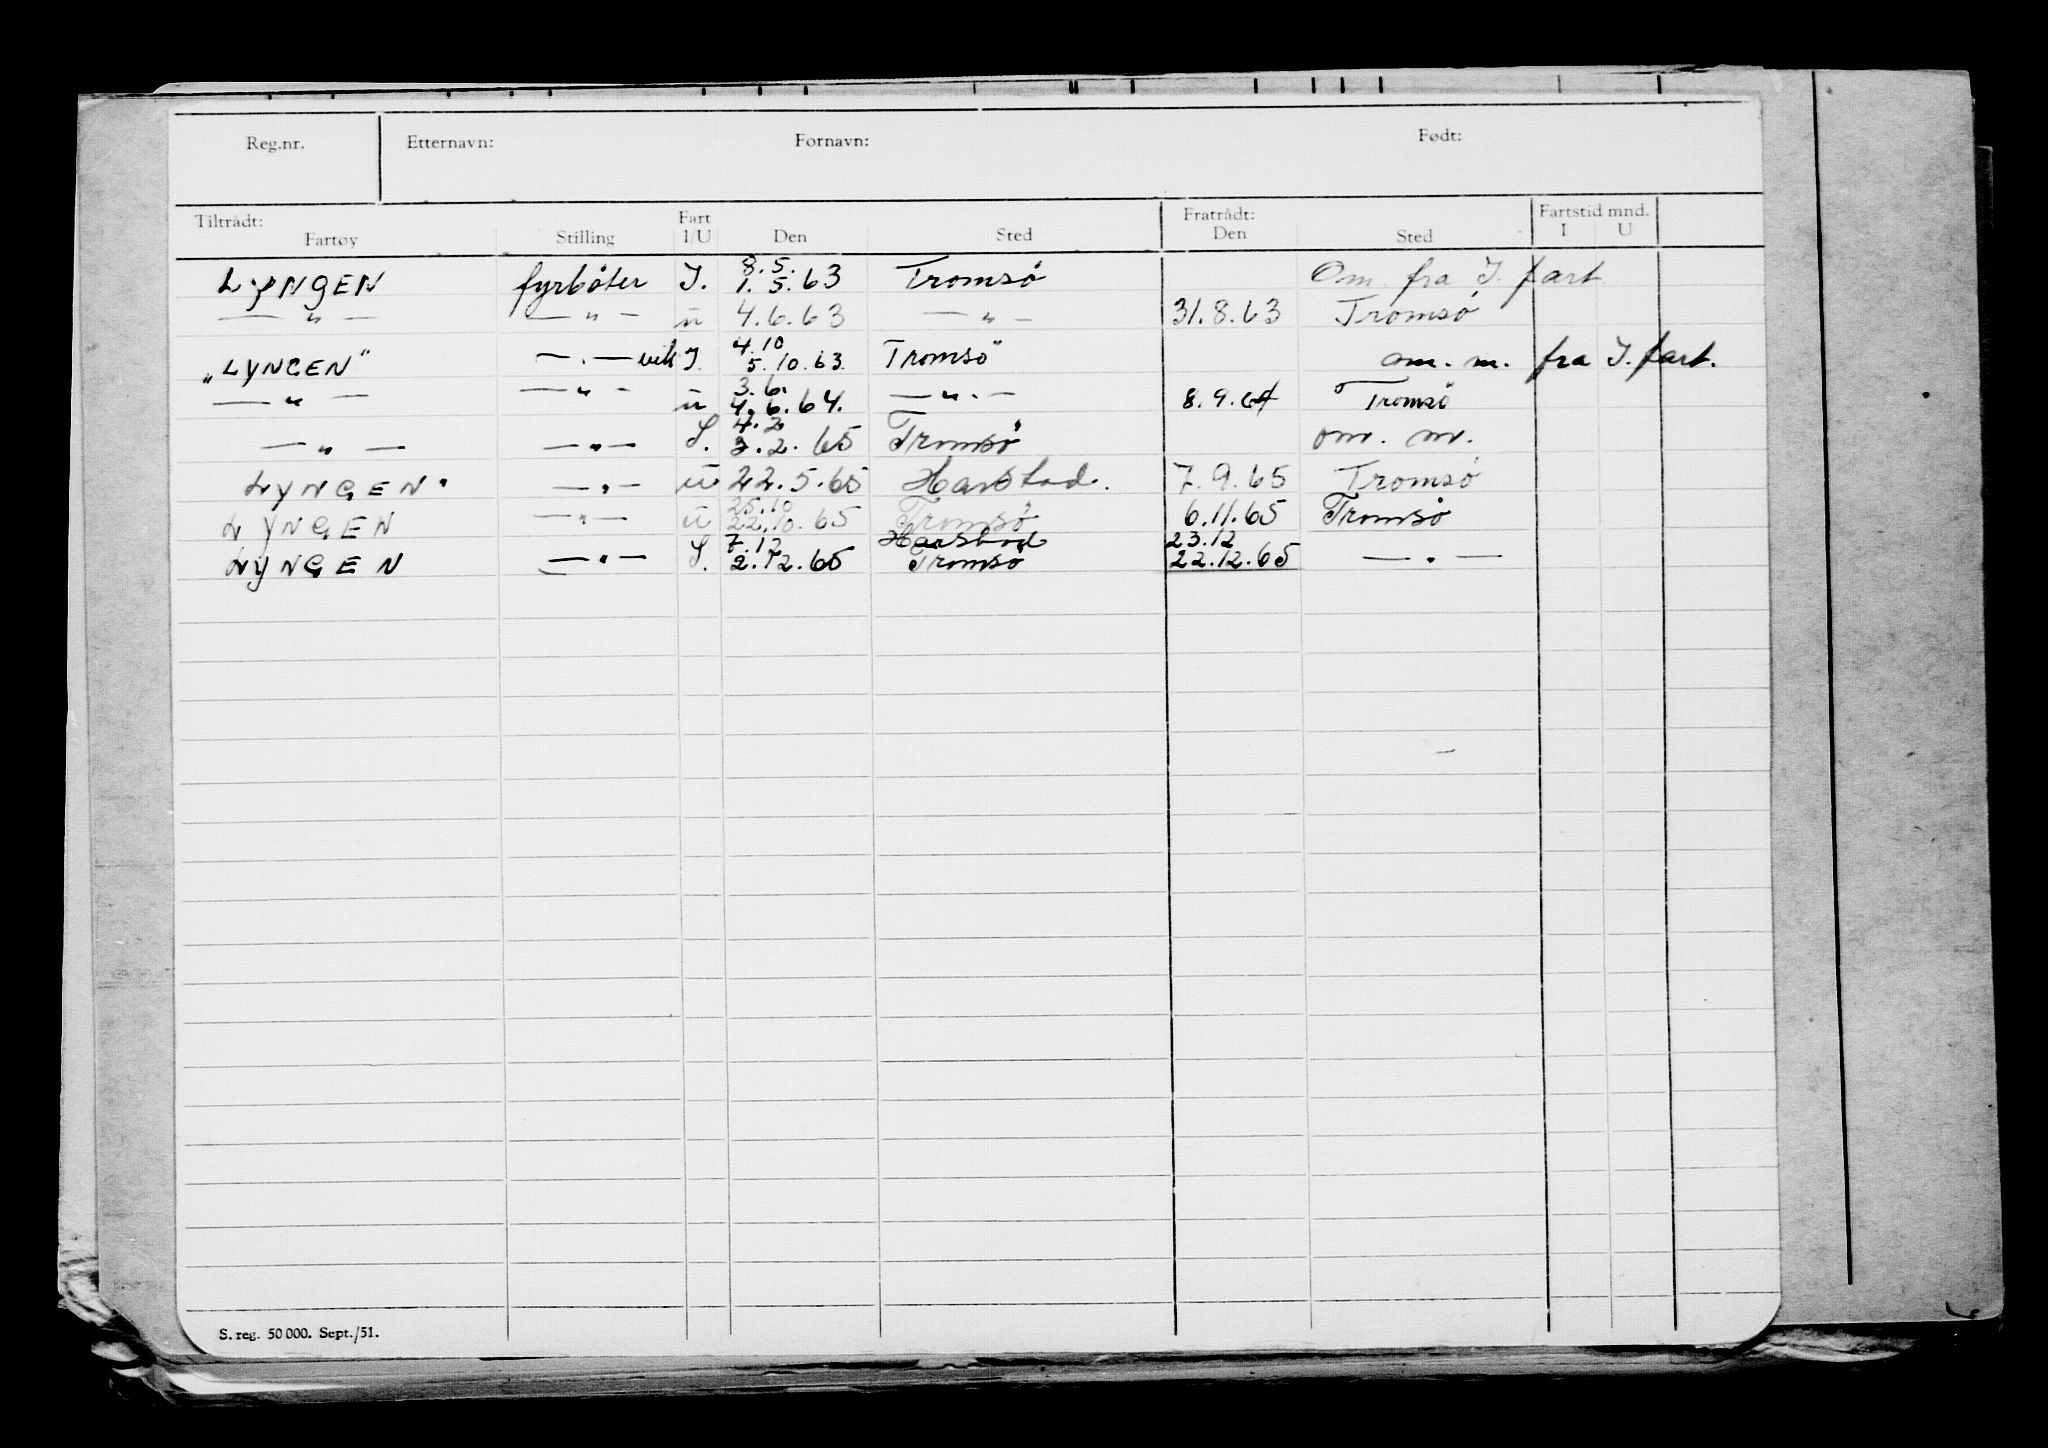 Reg.nr. Etternavn: Fornavn: Født:
Tiltrådt: Fart Fratrådt: Fartstid mnd.
Fartøy Stilling I/U Den Sted Den Sted I U
8.5.
LYNGEN fyrbøter I. 1.5.63 Tromsø Om. fra I. fart
— " — — " — u 4.6.63 — " — 31.8.63 Tromsø
4.10
"LYNGEN" — . — vik I. 5.10.63. Tromsø om. m. fra I. fart.
3.6.
— " — — " — u 4.6.64. — " . — 8.9.64 Tromsø
4.2
— " — — " — I. 3.2.65 Tromsø om. m.
LYNGEN" — " — u 22.5.65 Harstad. 7.9.65 Tromsø
25.10
LYNGEN — " — u 22.10.65 Tromsø 6.11.65 Tromsø
7.12 Harstad 23.12
LYNGEN — " — I. 2.12.65 Tromsø 22.12.65 — " —
S. reg. 50 000. Sept./51.